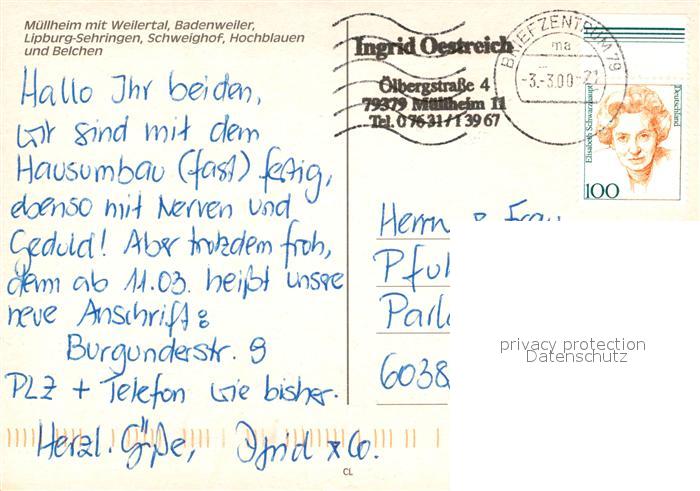 Müllheim mit Weilertal, Badenweiler,
Lipburg-Sehringen, Schweighof, Hochblauen
und Belchen
Hallo Ihr beiden,
wir sind mit dem
Hausumbau (fast) fertig,
ebenso mit Nerven und
Geduld! Aber trotzdem froh,
denn ab 11.03. heißt unsere
neue Anschrift:
Burgunderstr. 9
PLZ + Telefon wie bisher.
Herzl. Grüße, & Co.
CL
Ingrid Oestreich
Ölbergstraße 4
79379 Müllheim 11
Tel. 07631/13967
BRIEFZENTRUM 79
ma
-3.-3.00-21
Elisabeth Schwarzhaupt
Deutschland
100
Herrn & Frau
Pfu
Parl
6038
privacy protection
Datenschutz